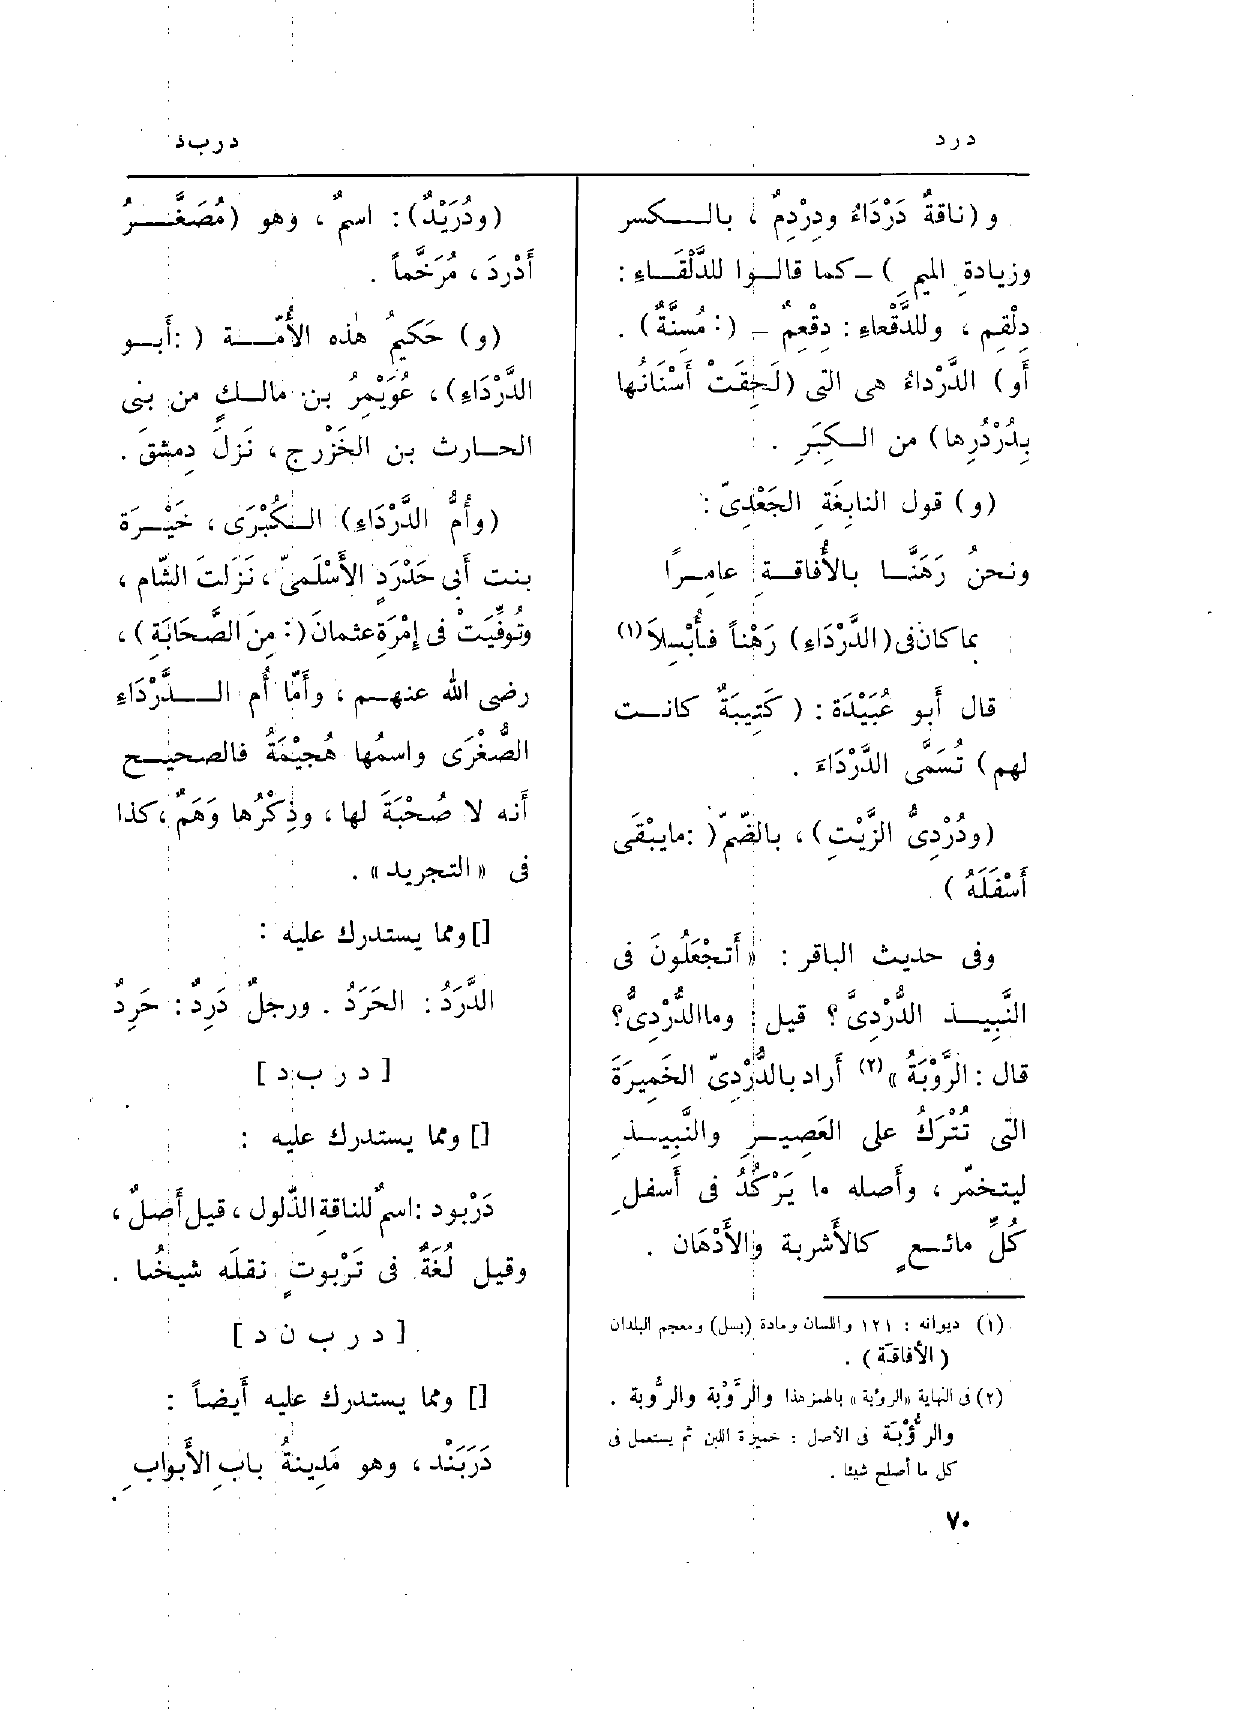 درد
دربذ
و (ناقةٌ دَرْدَاءُ ودِرْدِمٌ ، بالـكسر
وزيادةِ الميمِ ) – كما قالـوا للدَّلْقَـاءِ :
دِلْقِم ، وللدَّقْعاءِ : دِقْعِمٌ – (: مُسِنَّةٌ) .
أو) الدَّرْداءُ هى التى (لَحِقَتْ أَسْنَانُها
بِدُرْدُرِها) من الـكِبَرِ .
(و) قول النابِغَةِ الجَعْدِىّ :
ونحنُ رَهَنَّـا بالأُفاقـةِ عامـرًا
بما كان فى (الدَّرْدَاءِ) رَهْناً فأُبْسِلاَ (١)
قال أَبو عُبَيْدَة : ( كَتِيبَةٌ كانـت
لهم) تُسَمَّى الدَّرْدَاءَ .
(ودُرْدِىُّ الزَّيْتِ) ، بالضّمّ ( :مايبْقَى
أَسْفَلَهُ )
وفى حديث الباقر : « أَتجْعَلُونَ فى
النَّبِيـذ الدُّرْدِىَّ ؟ قيل : وماالدُّرْدِىُّ ؟
قال : الرَّوْبَةُ » (٢) أراد بالدُّرْدِىّ الخَمِيرَةَ
التى تُتْرَكُ على العَصِيـرِ والنَّبِيـذِ
ليتخمّر ، وأَصله ما يَرْكُدُ فى أَسفلِ
كُلِّ مائـعٍ كالأَشربة والأَدْهَان .
(١) ديوانه : ١٢١ واللسان ومادة (بسل) ومعجم البلدان
(الأُفاقَة) .
(٢) فى النهاية «الرؤبة» بالهمز هذا والرَّوْبة والرُّوبة .
والرُّؤْبَة فى الأصل : خميرة اللبن ثم يستعمل فى
كل ما أصلح شيئا .
(ودُرَيْدٌ) : اسمٌ ، وهو (مُصَغَّـرُ
أَدْردَ ، مُرَخَّماً .
(و) حَكِيمُ هٰذه الأُمّـة ( :أَبـو
الدَّرْدَاءِ) ، عُوَيْمِرُ بن مالـكٍ من بنى
الحـارث بن الخَزْرج ، نَزلَ دِمشقَ .
(وأُمُّ الدَّرْدَاءِ) الـكُبْرَى ، خَيْـرَة
بنت أَبى حَدْرَدٍ الأَسْلَمىّ ، نَزلَتَ الشّام ،
وتُوفِّيَتْ فى إِمْرَةِ عثمانَ (: مِنَ الصَّحَابَةِ) ،
رضى الله عنهـم ، وأَمّا أُم الـدَّرْدَاءِ
الصُّغْرَى واسمُها هُجَيْمَةُ فالصحيـح
أَنه لا صُحْبَةَ لها ، وذِكْرُها وَهَمٌ ، كذا
فى «التجريد» .
[] ومما يستدرك عليه :
الدَّرَدُ : الحَرَدُ . ورجلٌ دَرِدٌ : حَرِدٌ
[ د ر ب د ]
[] ومما يستدرك عليه :
دَرْبود : اسمٌ للناقة الذَّلول ، قيل أَصلٌ ،
وقيل لُغَةٌ فى تَرْبوتٍ نقلَه شيخُنا .
[ د ر ب ن د ]
[] ومما يستدرك عليه أَيضاً :
دَرَبَنْد ، وهو مَدِينةُ بابِ الأَبوابِ
٧٠